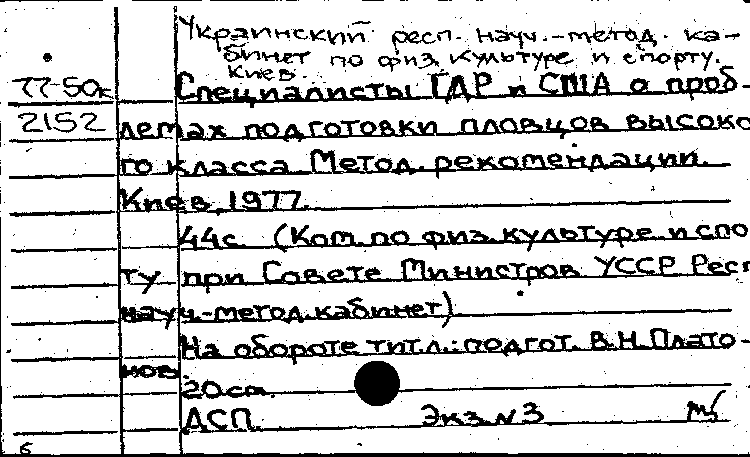 Украинский респ. науч.-метод. ка-
бинет по физ. культуре и спорту.
Киев.
77-50к
Специалисты ГДР и США о проб-
2152
лемах подготовки пловцов высоко
го класса Метод. рекомендации.
Киев, 1977.
44с. (Ком. по физ. культуре и спо
ту при Совете Министров УССР Респ
науч.-метод. кабинет)
На обороте тит.л.: подгот. В.Н. Плато-
нов.
20см.
ДСП. Экз. N 3
б